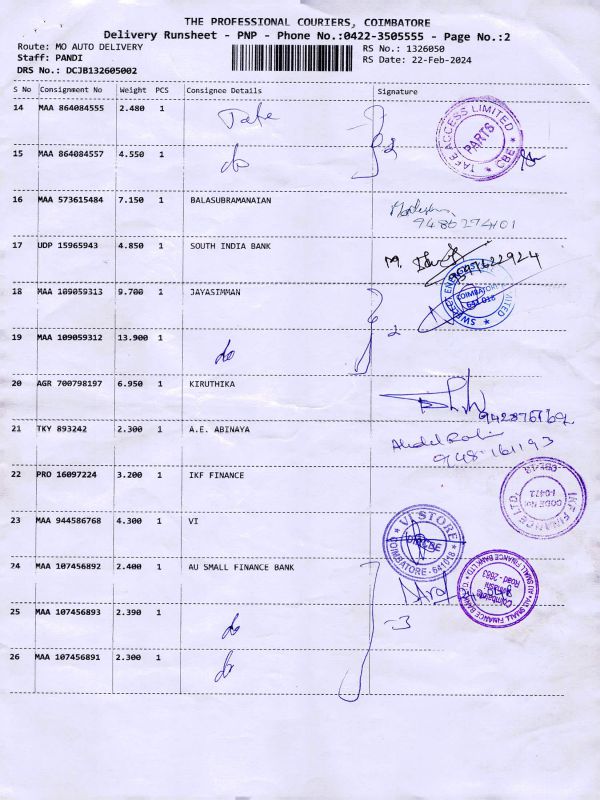 THE PROFESSIONAL COURIERS, COIMBATORE
Delivery Runsheet - PNP - Phone No.:0422-3505555 - Page No.:2
Route: MO AUTO DELIVERY RS No.: 1326050
Staff: PANDI RS Date: 22-Feb-2024
DRS No.: DCJB132605002
S No Consignment No Weight PCS Consignee Details Signature
14 MAA 864084555 2.480 1 Tafe
TAFE ACCESS LIMITED * CBE * PARTS
15 MAA 864084557 4.550 1 do 2
16 MAA 573615484 7.150 1 BALASUBRAMANAIAN
17 UDP 15965943 4.850 1 SOUTH INDIA BANK
18 MAA 109059313 9.700 1 JAYASIMMAN
COIMBATORE
19 MAA 109059312 13.900 1 do 2
20 AGR 700798197 6.950 1 KIRUTHIKA
21 TKY 893242 2.300 1 A.E. ABINAYA
22 PRO 16097224 3.200 1 IKF FINANCE
IKF FINANCE LTD. CODE No: I-0472 CBE-18
23 MAA 944586768 4.300 1 VI
VI STORE COIMBATORE - 641018
24 MAA 107456892 2.400 1 AU SMALL FINANCE BANK
AU SMALL FINANCE BANK LTD Coimbatore Road - 2683
25 MAA 107456893 2.390 1 do -3
26 MAA 107456891 2.300 1 do